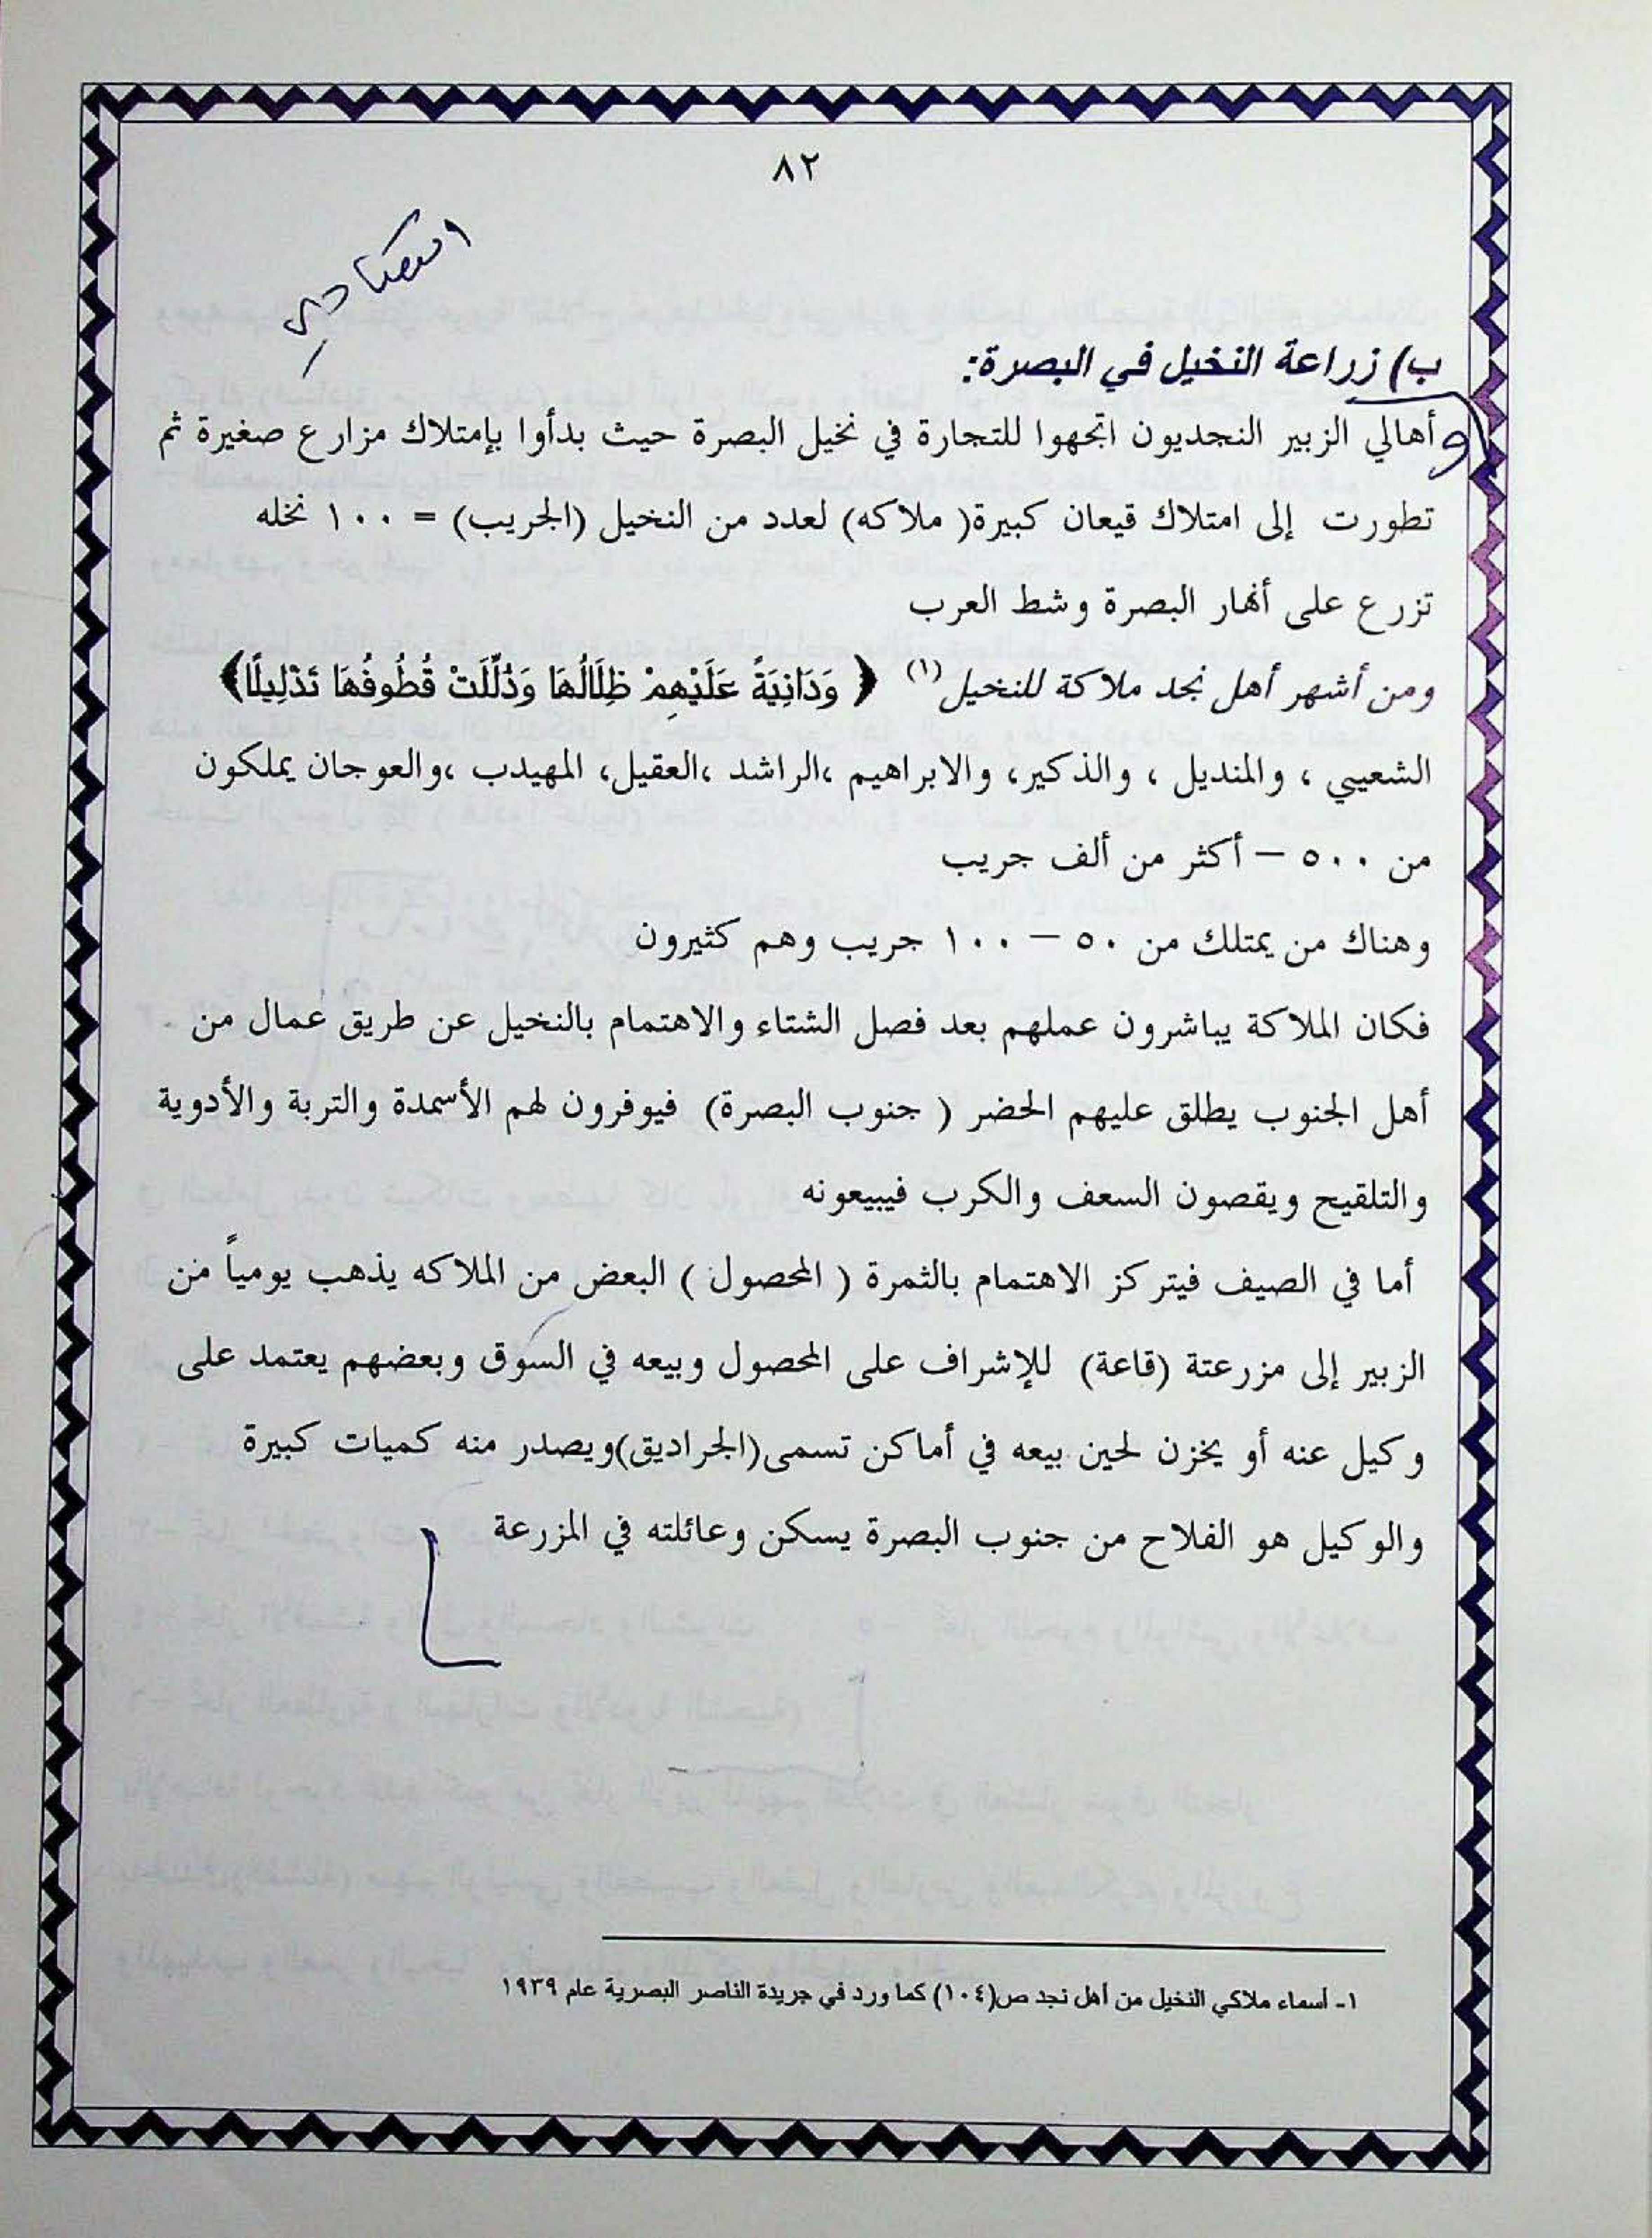 ٨٢
اقتصادي
ب) زراعة النخيل في البصرة:
وأهالي الزبير النجديون اتجهوا للتجارة في نخيل البصرة حيث بدأوا بإمتلاك مزارع صغيرة ثم
تطورت إلى امتلاك قيعان كبيرة( ملاكه) لعدد من النخيل (الجريب) = ١٠٠ نخله
تزرع على أنهار البصرة وشط العرب
ومن أشهر أهل نجد ملاكة للنخيل(١) ﴿ وَدَانِيَةً عَلَيْهِمْ ظِلَالُهَا وَذُلِّلَتْ قُطُوفُهَا تَذْلِيلًا﴾
الشعيبي ، والمنديل ، والذكير، والابراهيم ،الراشد ،العقيل، المهيدب ،والعوجان يملكون
من ٥٠٠ – أكثر من ألف جريب
وهناك من يمتلك من ٥٠ – ١٠٠ جريب وهم كثيرون
فكان الملاكة يباشرون عملهم بعد فصل الشتاء والاهتمام بالنخيل عن طريق عمال من
أهل الجنوب يطلق عليهم الحضر ( جنوب البصرة) فيوفرون لهم الأسمدة والتربة والأدوية
والتلقيح ويقصون السعف والكرب فيبيعونه
أما في الصيف فيتركز الاهتمام بالثمرة ( المحصول ) البعض من الملاكه يذهب يومياً من
الزبير إلى مزرعتة (قاعة) للإشراف على المحصول وبيعه في السوق وبعضهم يعتمد على
وكيل عنه أو يخزن لحين بيعه في أماكن تسمى(الجراديق)ويصدر منه كميات كبيرة
والوكيل هو الفلاح من جنوب البصرة يسكن وعائلته في المزرعة
١- أسماء ملاكي النخيل من أهل نجد ص(١٠٤) كما ورد في جريدة الناصر البصرية عام ١٩٣٩